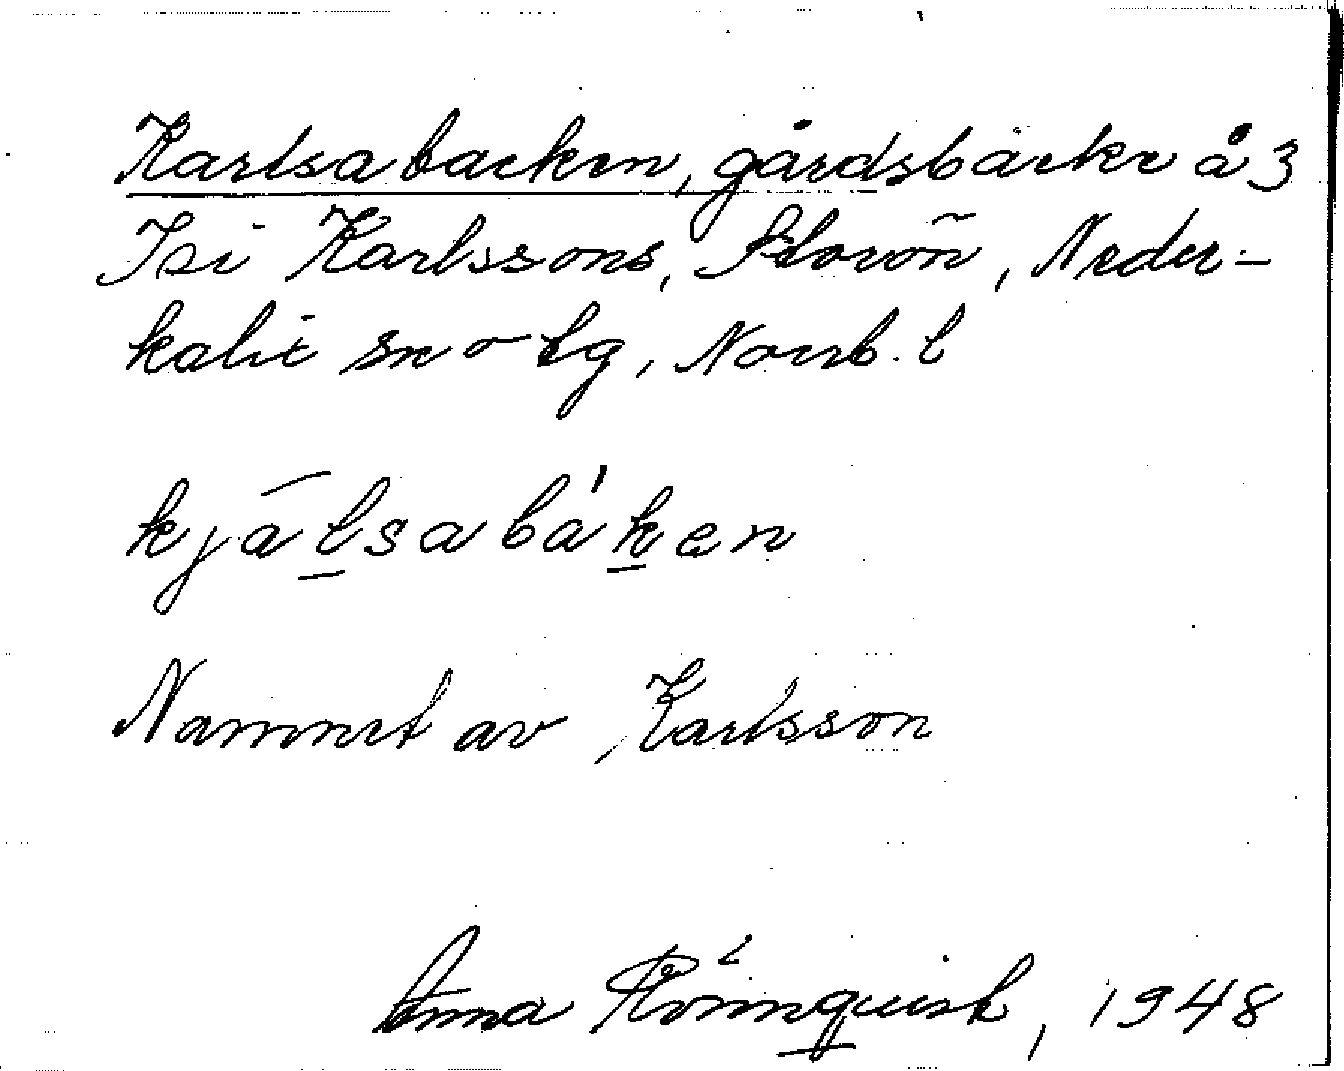 Karlsabacken, gårdsbacke å 3
Isi Karlssons, Storön, Neder-
kalix sn o tg, Norrb. l
kjālsabáken
Namnet av Karlsson
Anna Rönnquist, 1948